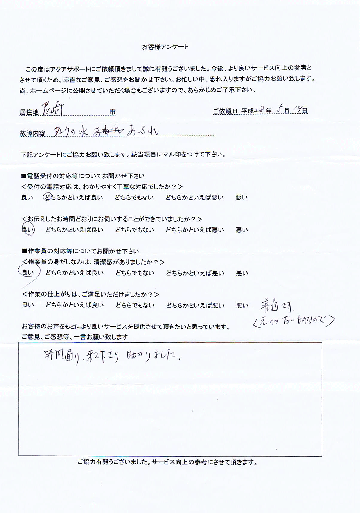 お客様アンケート
この度はアクアサポートにご依頼頂きまして誠に有難うございました。今後、より良いサービス向上の参考と
させて頂くため、率直なご意見、ご感想をお聞かせ下さい。お忙しい中、恐れ入りますがご協力お願い致します。
尚、ホームページに公開させていただく場合もございますので、あらかじめご了承下さい。
居住地 市 ご依頼日 平成 年 月 日
依頼内容
下記アンケートにご協力お願い致します。該当項目に丸印をつけて下さい。
■電話受付の対応等についてお聞かせ下さい
<受付の電話対応は、わかりやすく丁寧な対応でしたか?>
良い どちらかといえば良い どちらでもない どちらかといえば悪い 悪い
<お伝えしたお時間どおりにお伺いすることができていましたか?>
良い どちらかといえば良い どちらでもない どちらかといえば悪い 悪い
■作業員の対応等についてお聞かせ下さい
<作業員の身だしなみは、清潔感がありましたか?>
良い どちらかといえば良い どちらでもない どちらかといえば悪い 悪い
<作業の仕上がりは、ご満足いただけましたか?>
良い どちらかといえば良い どちらでもない どちらかといえば悪い 悪い
お客様のお声をもとにより良いサービスを提供させて頂きたいと思っています。
ご意見、ご感想等、一言お願い致します
時間通り、来て下さり 助かりました。
ご協力有難うございました。サービス向上の参考にさせて頂きます。